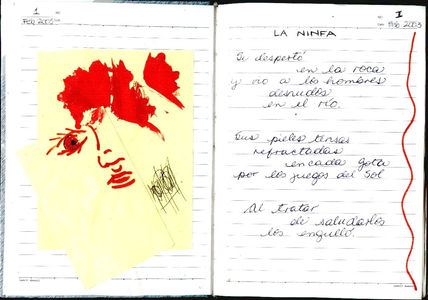 1
Feb 2003
I
Feb 2003
LA NINFA
Se despertó
en la roca
y vio a los hombres
desnudos
en el río.
Sus pieles tensas
refractadas
en cada gota
por los juegos del Sol
Al tratar
de saludarlos
los engulló.